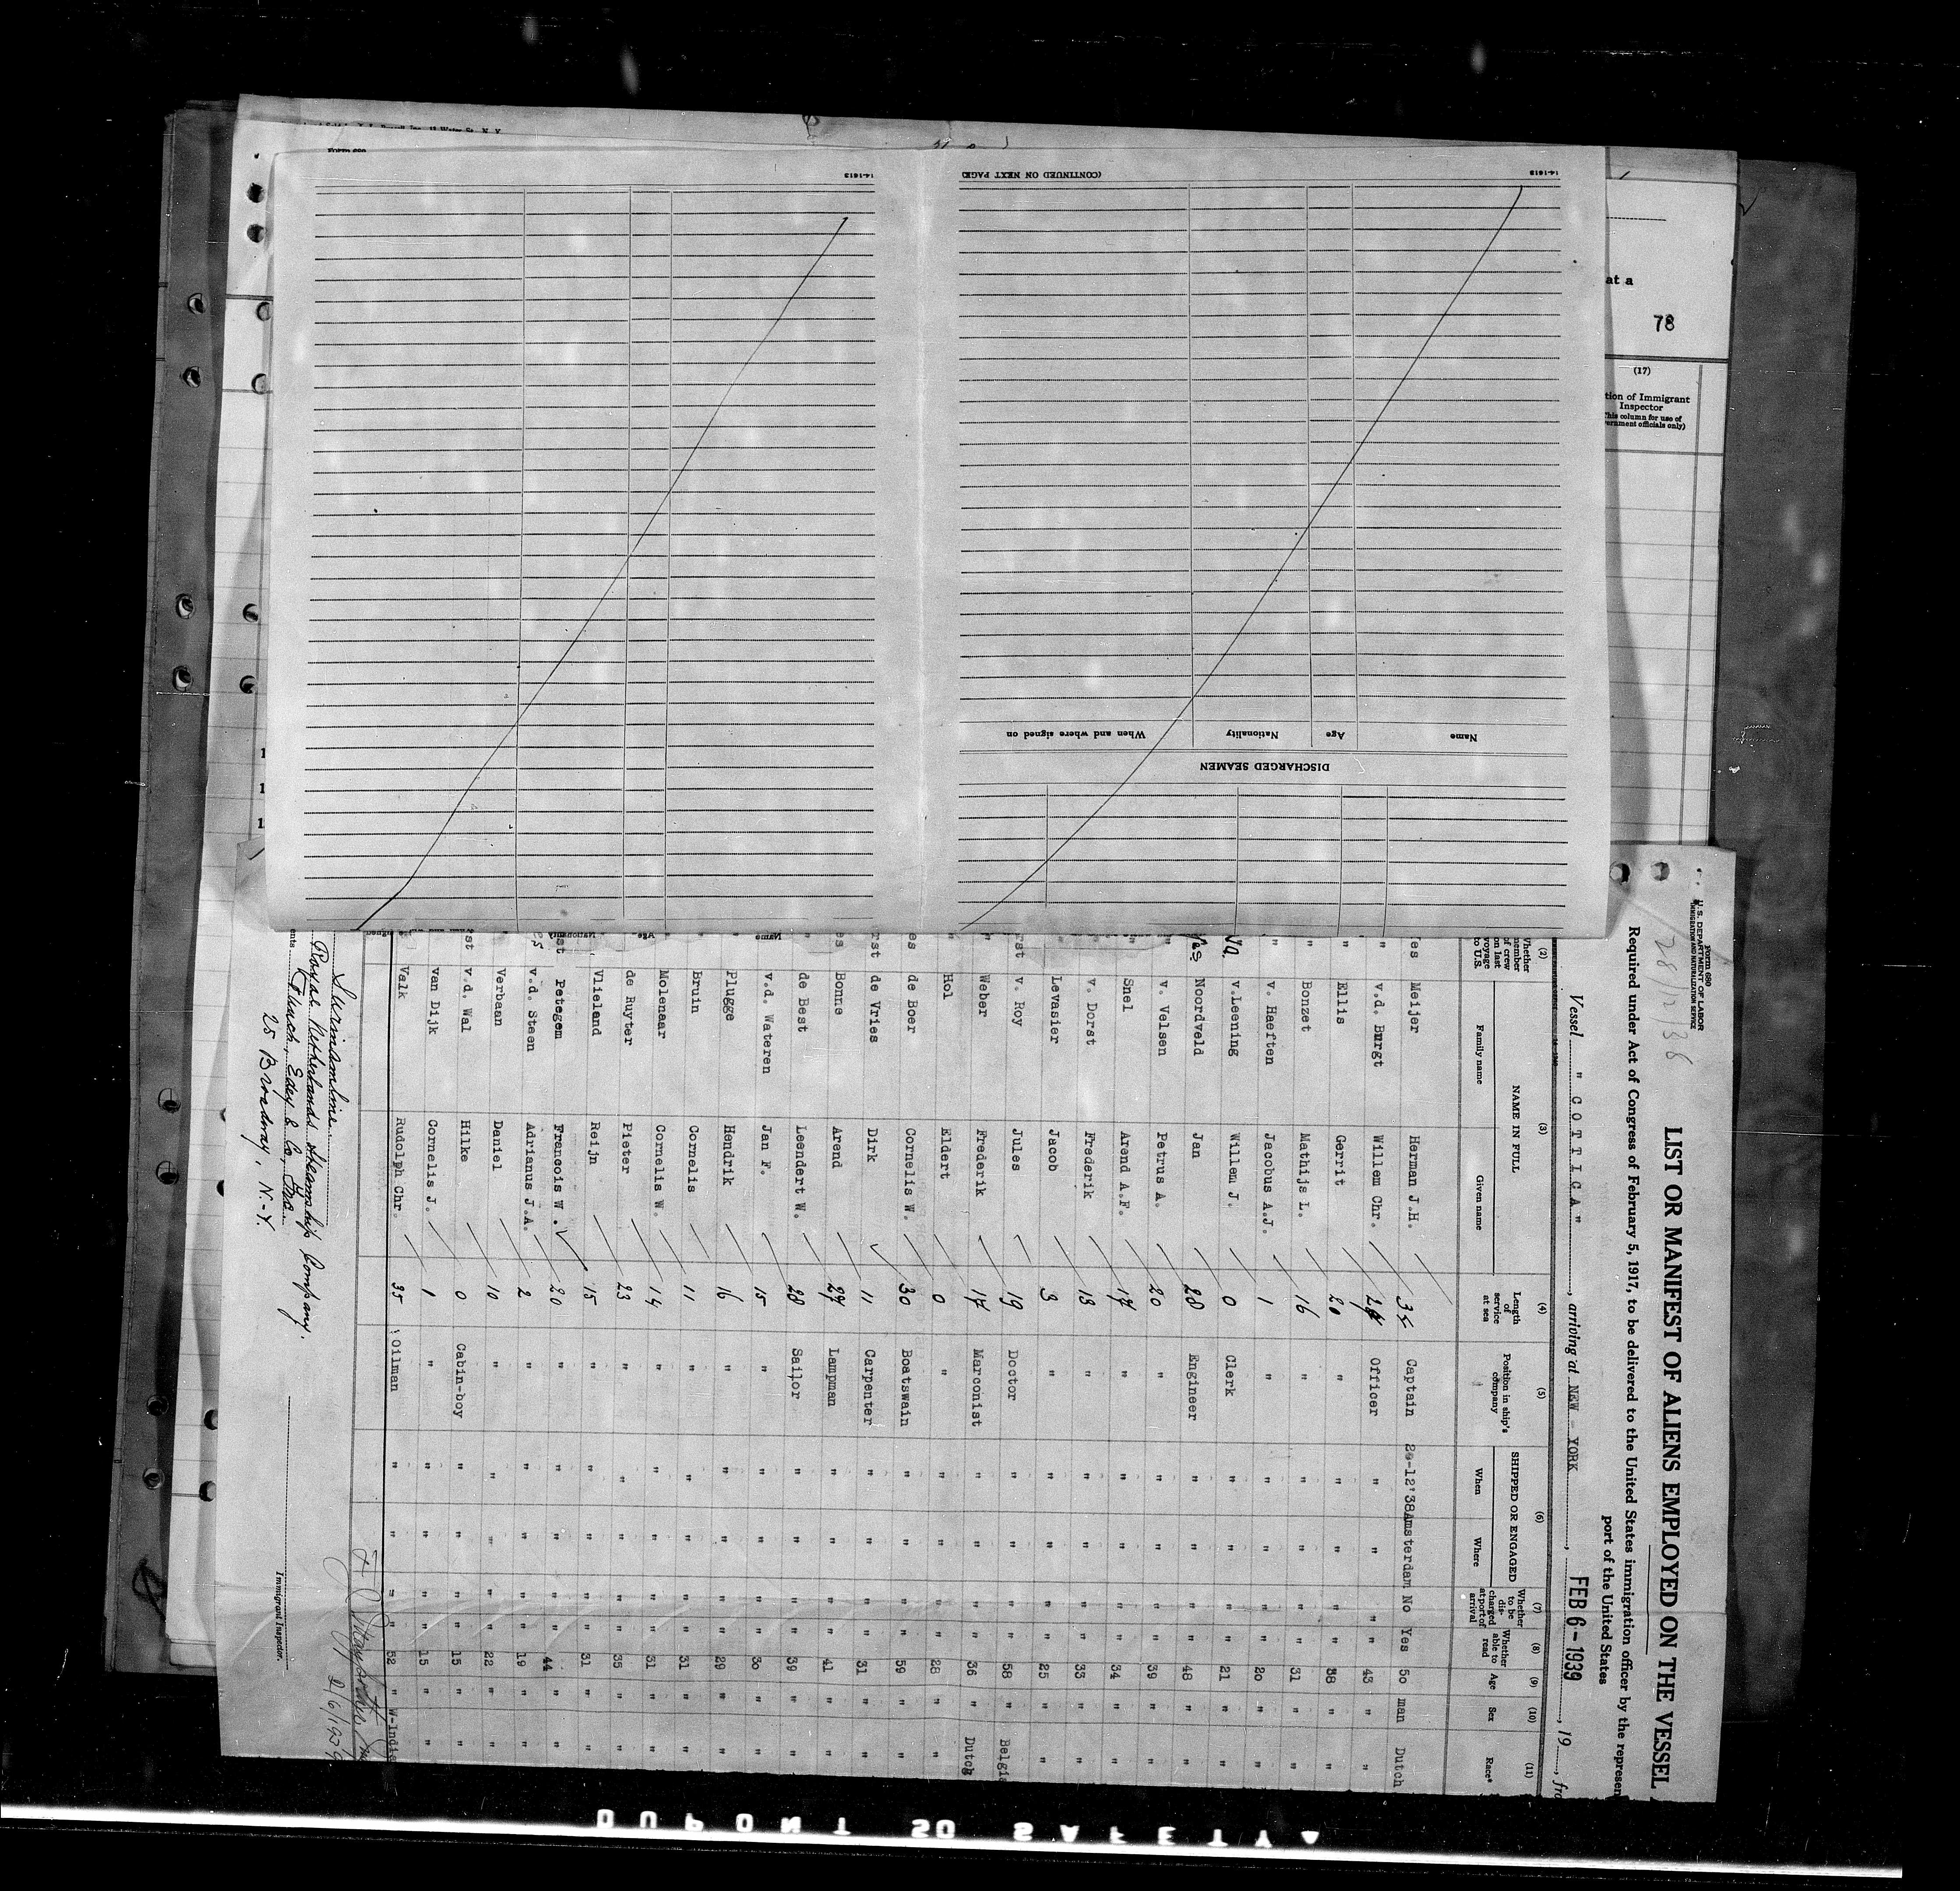 Form 680
U. S. DEPARTMENT OF LABOR
IMMIGRATION AND NATURALIZATION SERVICE
28/12/38
LIST OR MANIFEST OF ALIENS EMPLOYED ON THE VESSEL
Required under Act of Congress of February 5, 1917, to be delivered to the United States immigration officer by the represen
port of the United States
Vessel " C O T T I C A " , arriving at NEW YORK , FEB 6-1939 , 19 , fro
(2) (3) (4) (5) (6) (7) (8) (9) (10) (11)
Whether member of crew on last voyage to U.S. NAME IN FULL Family name Given name Length of service at sea Position in ship's company SHIPPED OR ENGAGED When Where Whether to be discharged at port of arrival Whether able to read Age Sex Race*
es Meijer Herman J.H. 35 Captain 28-12'38 Amsterdam No Yes 50 man Dutch
" v.d. Burgt Willem Chr. 24 Officer " " " " 43 " "
" Ellis Gerrit 20 " " " " " 38 " "
" Bonzet Mathijs L. 16 " " " " " 31 " "
" v. Haeften Jacobus A.J. 1 " " " " " 20 " "
No v.Leening Willem J. 0 Clerk " " " " 21 " "
Yes Noordveld Jan 28 Engineer " " " " 48 " "
" v. Velsen Petrus A. 20 " " " " " 39 " "
" Snel Arend A.F. 17 " " " " " 34 " "
" v. Dorst Frederik 13 " " " " " 33 " "
" Levasier Jacob 3 " " " " " 25 " "
rst v. Roy Jules 19 Doctor " " " " 58 " Belgi
" Weber Frederik 17 Marconist " " " " 36 " Dutch
" Hol Eldert 0 " " " " " 28 " "
es de Boer Cornelis W. 30 Boatswain " " " " 59 " "
rst de Vries Dirk 11 Carpenter " " " " 31 " "
es Bonne Arend 27 Lampman " " " " 41 " "
" de Best Leendert W. 28 Sailor " " " " 39 " "
" v.d. Wateren Jan F. 15 " " " " " 30 " "
" Plugge Hendrik 16 " " " " " 29 " "
" Bruin Cornelis 11 " " " " " 31 " "
" Molenaar Cornelis W. 14 " " " " " 31 " "
de Ruyter Pieter 23 " " " " " 35 " "
Vlieland Reijn 15 " " " " " 31 " "
st Petegem Francois W. 20 " " " " " 44 " "
v.d. Steen Adrianus J.A. 2 " " " " " 19 " "
" Verbaan Daniel 10 " " " " " 22 " "
st v.d. Wal Hilke 0 Cabin-boy " " " " 15 " "
van Dijk Cornelis J. 1 " " " " " 15 " "
Valk Rudolph Chr. 35 Oilman " " " " 52 " W-Indie
Surinamline
Royal Netherlands Steamship Company.
Funch, Edye & Co, Inc.
25 Broadway, N-Y.
2/6/1939
Immigrant Inspector.
ents
Form 680
14-1613
(CONTINUED ON NEXT PAGE)
14-1613
DISCHARGED SEAMEN
Name Age Nationality When and where signed on
Name Age Nationality
at a
78
(17)
tion of Immigrant
Inspector
This column for use of
vernment officials only)
DUPONT SO SAFETY